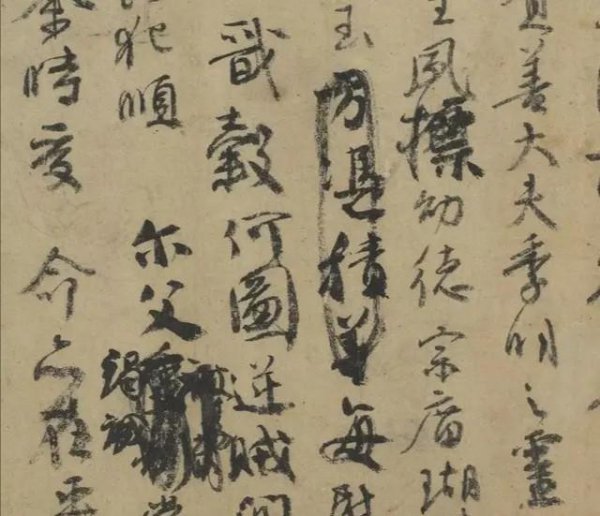 善大夫季明之靈
生夙標幼德宗廟瑚
玉方憑積善每慰
戩穀何圖逆賊閒
犯順尔父竭誠常
余時受命亦在平